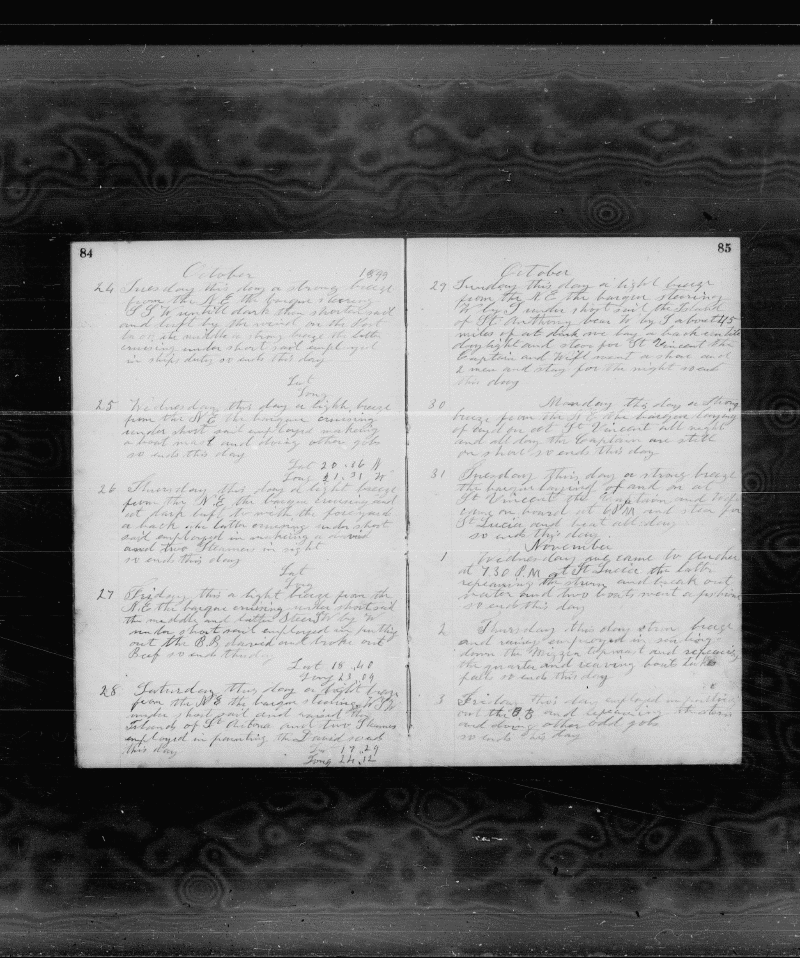 84
October 1899
24 Tuesday this day a strong breeze
from the N.E. the barque steering
S.S.W untill dark then shortened sail
and luft by the wind on the Port
the middle a strong breeze the latter
cruising under short sail employed
in ships duty so ends this day
Lat
Long
25 Wednesday this day a light breeze
from the N.E. the barque cruising
under short sail employed makeing
a boat mast and doing other jobs
so ends this day
Lat 20.16 N
Long 21.31 W
26 Thursday this day a light breeze
from the N.E. the barque cruising and
at dark luft to with the foreyard
a back the latter cruising under short
sail employed in makeing a david
and two Steamers in sight
so ends this day
Lat
Long
27 Friday this a light breeze from the
N.E. the barque cruising under short sail
the middle and latter Steer W by W
under short sail employed in putting
out the B.B. david and broke out
Beef so ends this day
Lat 18.40
Long 23.09
28 Saturday this day a light breeze
from the N.E. the barque steering W.S.W
under short sail and raised the
Islands of St and two Steamers
employed in painting the David so ends
this day
Lat 17.29
Long 24.12
85
October
29 Sunday this day a light breeze
from the N.E. the barque steering
W by S under short sail the Island
of St Anthony bear W by S about 45
miles of at dark one lay a back untill
day light and steer for St Vincent the
Captain and Wife went a shore and
2 men and stay for the night so end
this day
30 Monday this day a Strong
breeze from the N.E. the barque laying
of and on at St Vincent all night
and all day the Captain are still
on shore so ends this day
31 Tuesday this day a strong breeze
the barque laying of and on at
St Vincent the Captain and Wife
come on board at 6 PM and steer for
St Lucia and beat all day
so ends this day
November
1 Wednesday we came to anchor
at 7.30 P.M at St Lucia the latter
repearing the stern and break out
water and two boats went a fishing
so ends this day
2 Thursday this day strong breeze
and raining employed in sending
down the Mizzen topmast and repearing
the quarter and reaving boat tackle
falls so ends this day
3 Friday this day employed in putting
out the B.B and repearing the stern
and doing other odd jobs
so ends this day